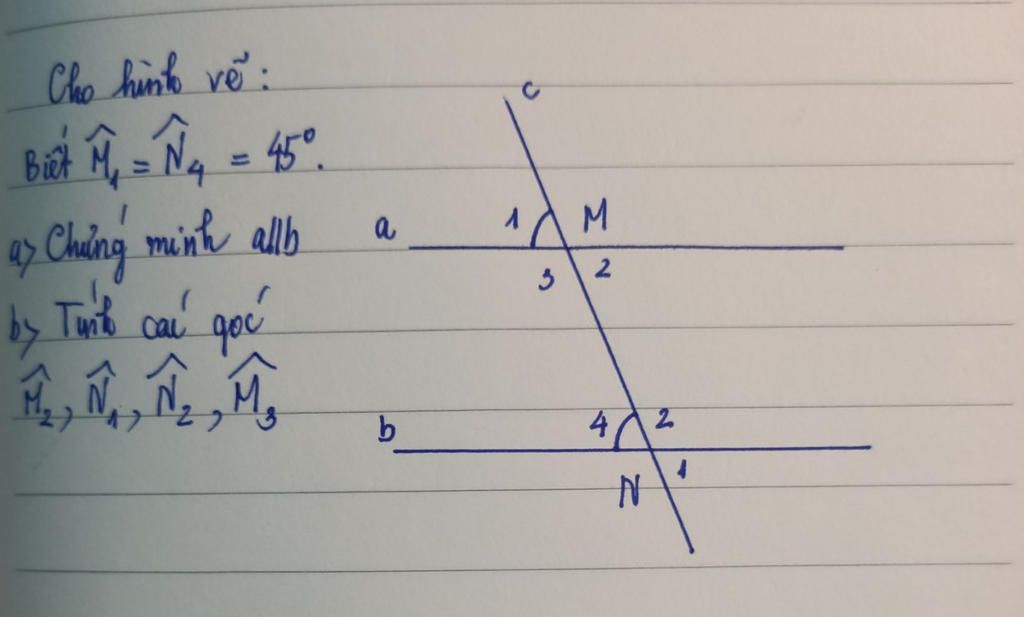 Cho hình vẽ:
Biết M̂₁ = N̂₄ = 45°.
a> Chứng minh a//b
b> Tính các góc
M̂₂, N̂₁, N̂₂, M̂₃
c
1 M
a
3 2
4 2
b
1
N